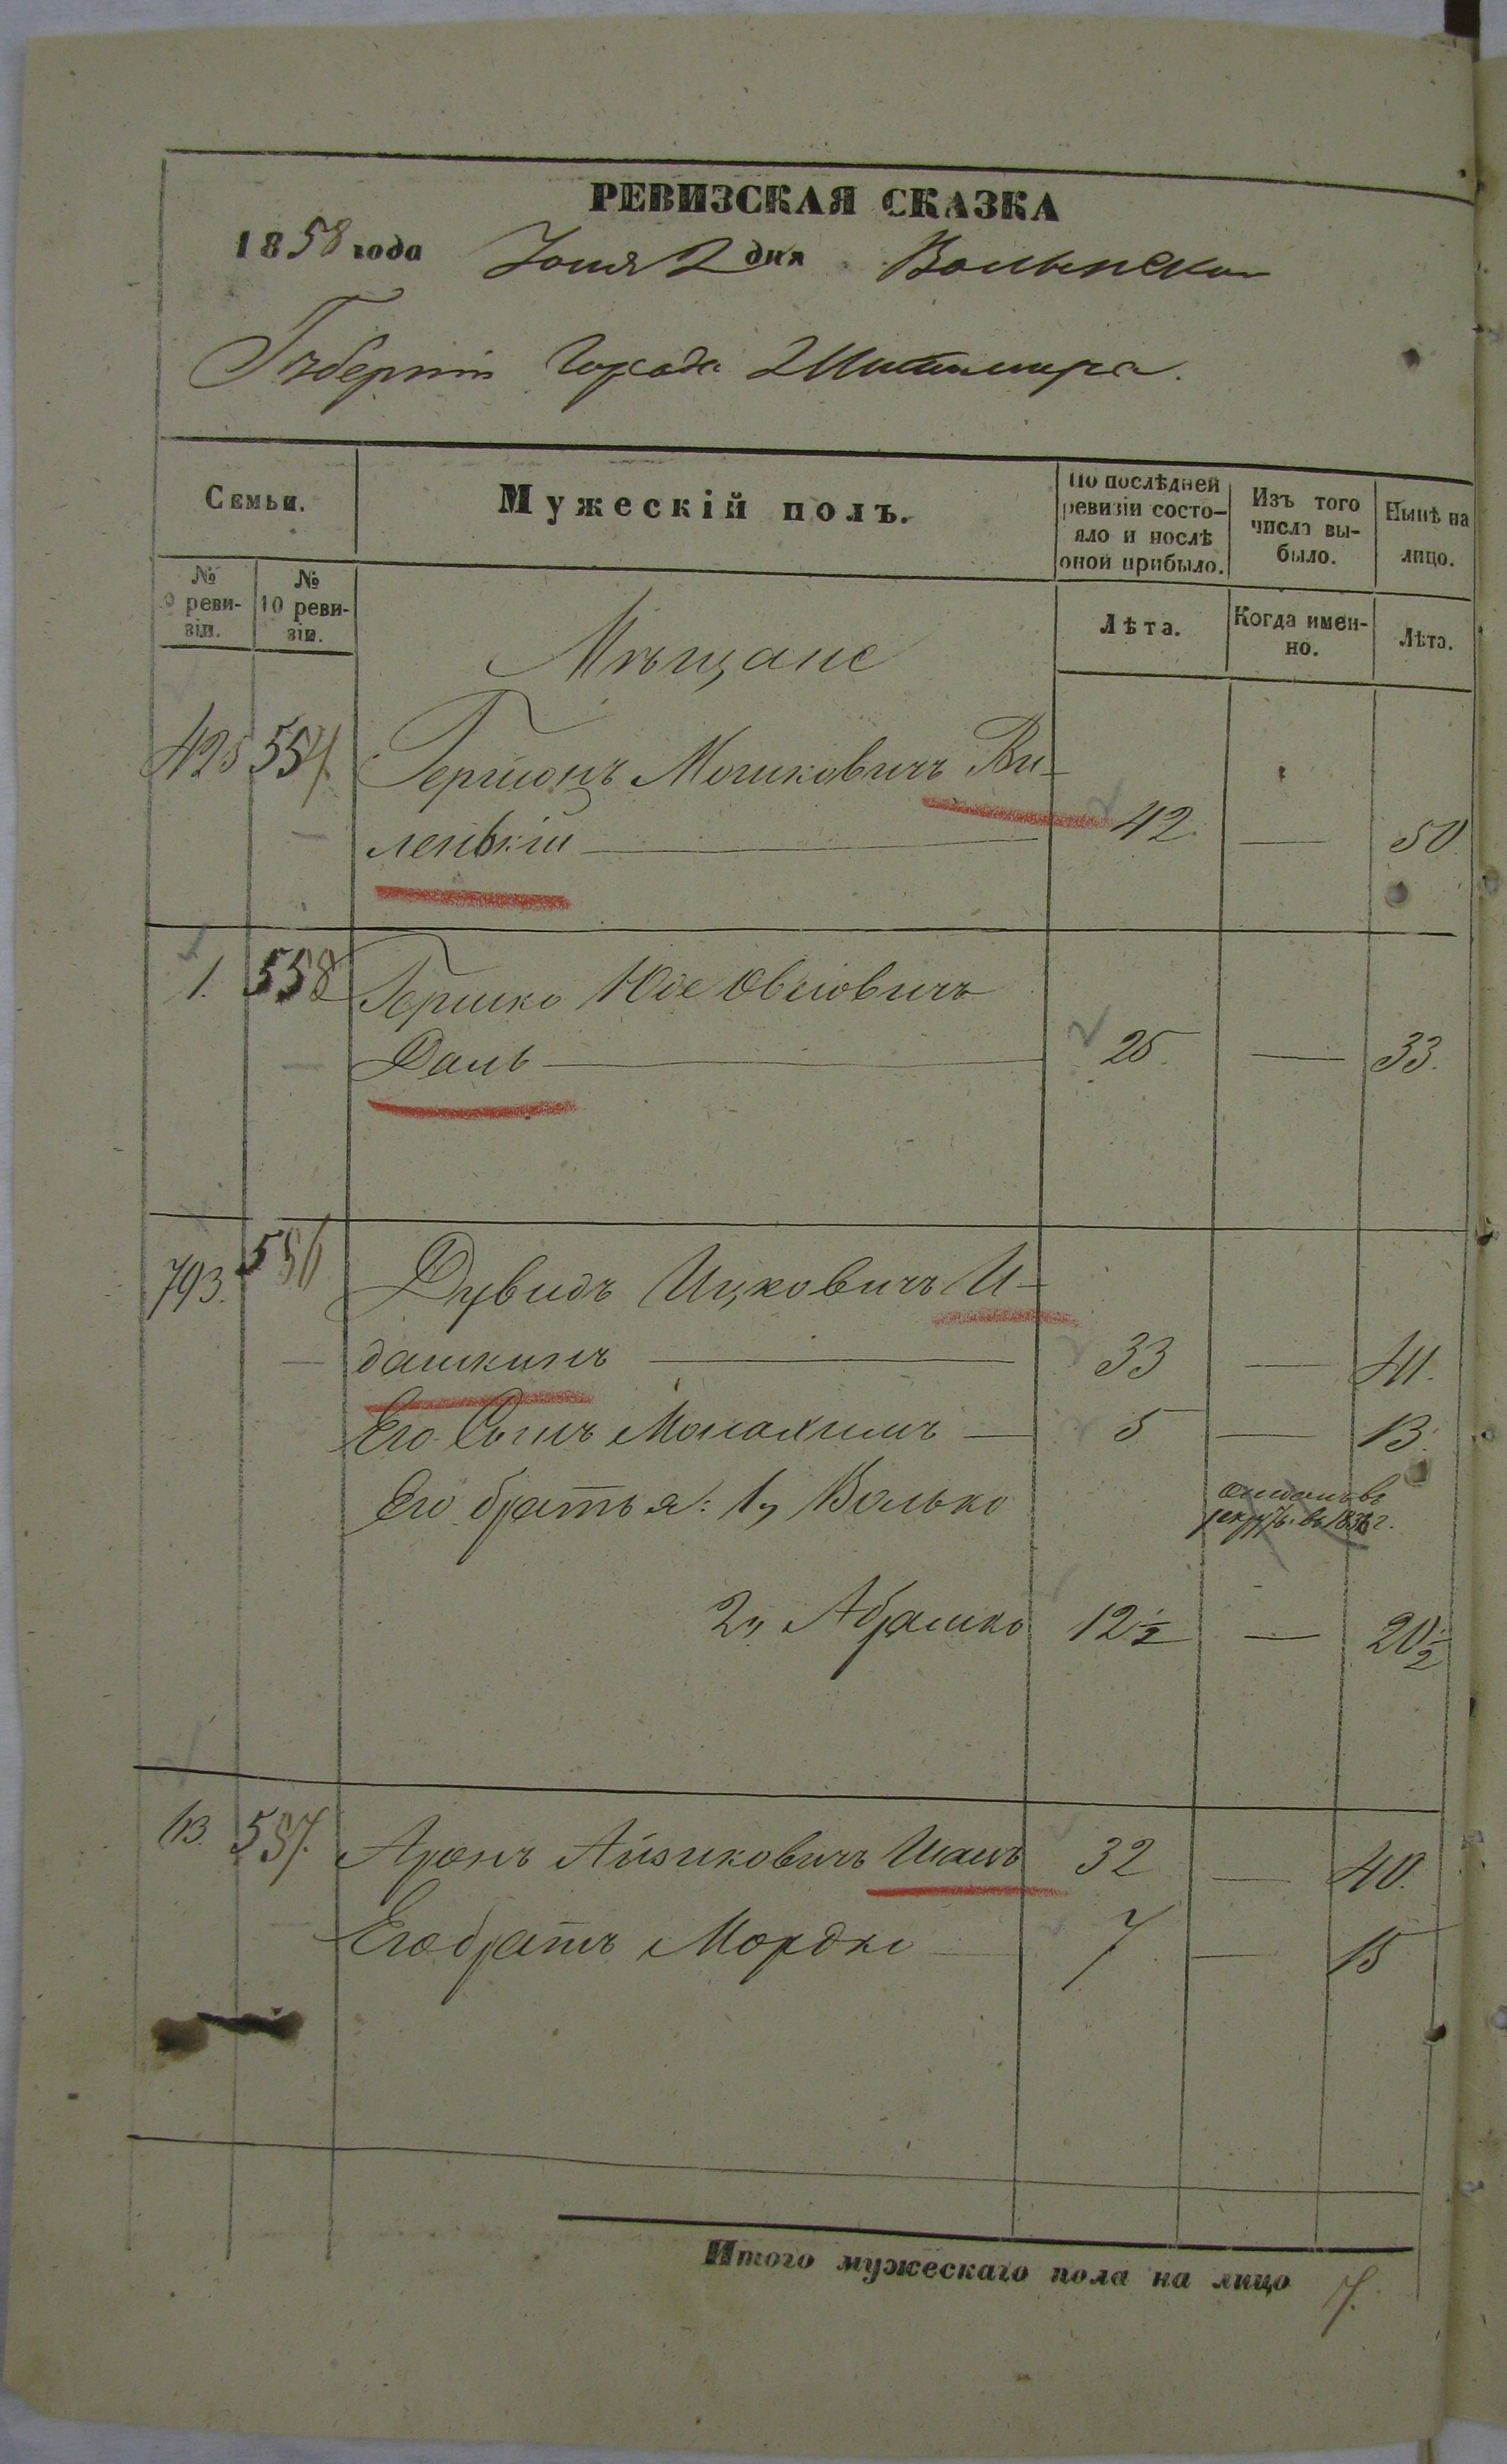 РЕВИЗСКАЯ СКАЗКА
1858 года Іюня 2 дня Волынской
Губерніи города Житомира.
Семьи.
Мужескій полъ.
По послѣдней ревизіи состо-
яло и послѣ
оной прибыло.
Изъ того
числа вы-
было.
Нынѣ на
лицо.
№
9 реви-
зіи.
№
10 реви-
зіи.
Лѣта.
Когда имен-
но.
Лѣта.
Мѣщане
425 554 Гершонъ Мошковичъ Ви-
ленскій — 42 — 50
1. 558 Гершко Юде Овсіовичъ
Даль — 25 — 33.
793. 556 Дувидъ Ицковичъ И-
дашкинъ — 33 — 41.
Его Сынъ Монахимъ — 5 — 13.
Его братья: 1, Волько отданъ въ
рекруты въ 1856 г.
2, Абрамко 12½ — 20½
13. 557. Аронъ Айзиковичъ Шамъ 32 — 40.
Его братъ Мордко — 7 — 15
Итого мужескаго пола на лицо 7.